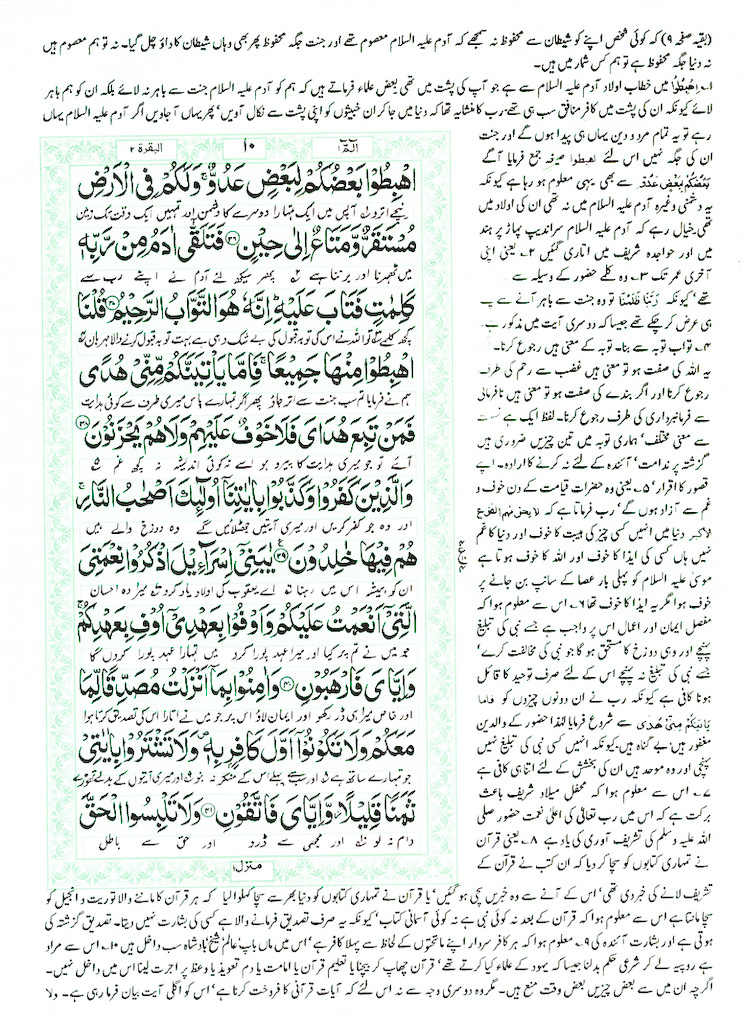 (بقیہ صفحہ ۹) کہ کوئی شخص اپنے کو شیطان سے محفوظ نہ سمجھے کہ آدم علیہ السلام معصوم تھے اور جنت جگہ محفوظ پھر بھی وہاں شیطان کا داؤ چل گیا۔ نہ تو ہم معصوم ہیں
نہ دنیا جگہ محفوظ ہے تو ہم کس شمار میں ہیں۔
۱۔ اھبطوا میں خطاب اولاد آدم علیہ السلام سے ہے جو آپ کی پشت میں تھی بعض علماء فرماتے ہیں کہ ہم کو آدم علیہ السلام جنت سے باہر نہ لائے بلکہ ان کو ہم باہر
لائے کیونکہ ان کی پشت میں کافر منافق سب ہی تھے۔ رب کا منشا یہ تھا کہ دنیا میں جا کر ان خبیثوں کو اپنی پشت سے نکال آویں' پھر یہاں آ جاویں اگر آدم علیہ السلام یہاں
رہتے تو یہ تمام مردود یہاں ہی پیدا ہوں گے اور جنت
ان کی جگہ نہیں اس لئے اھبطوا صیغہ جمع فرمایا آگے
بعضکم لبعض عدو سے بھی یہی معلوم ہو رہا ہے کیونکہ
یہ دشمنی وغیرہ آدم علیہ السلام میں نہ تھی ان کی اولاد میں
تھی۔ خیال رہے کہ آدم علیہ السلام سراندیپ پہاڑ پر ہند
میں اور حوا جدہ شریف میں اتاری گئیں ۲۔ یعنی اپنی
آخری عمر تک ۳۔ وہ کلمے حضور کے وسیلہ سے
تھے' کیونکہ ربنا ظلمنا تو وہ جنت سے باہر آنے سے پہلے
ہی عرض کر چکے تھے جیسا کہ دوسری آیت میں مذکور ہے
۴۔ تواب توبہ سے بنا۔ توبہ کے معنی ہیں رجوع کرنا۔
یہ اللہ کی صفت ہو تو معنی ہیں غضب سے رحم کی طرف
رجوع کرنا اور اگر بندے کی صفت ہو تو معنی ہیں نافرمانی
سے فرمانبرداری کی طرف رجوع کرنا۔ لفظ ایک ہے نسبت
سے معنی مختلف' ہماری توبہ میں تین چیزیں ضروری ہیں
گزشتہ پر ندامت' آئندہ کے لئے نہ کرنے کا ارادہ۔ اپنے
قصور کا اقرار' ۵۔ یعنی وہ حضرات قیامت کے دن خوف و
غم سے آزاد ہوں گے' رب فرماتا ہے کہ لا یحزنہم الفزع
الاکبر دنیا میں انہیں کسی چیز کی ہیبت کا خوف اور دنیا کا غم
نہیں ہاں کسی کی ایذا کا خوف اور اللہ کا خوف ہوتا ہے
موسیٰ علیہ السلام کو پہلی بار عصا کے سانپ بن جانے پر
خوف ہوا مگر یہ ایذا کا خوف تھا ۶۔ اس سے معلوم ہوا کہ
مفصل ایمان اور اعمال اس پر واجب ہے جسے نبی کی تبلیغ
پہنچے اور وہی دوزخ کا مستحق ہو گا جو نبی کی مخالفت کرے'
جسے نبی کی تبلیغ نہ پہنچے اس کے لئے صرف توحید کا قائل
ہونا کافی ہے کیونکہ رب نے ان دونوں چیزوں کو فاما
یاتینکم منی ھدی سے شروع فرمایا لہٰذا حضور کے والدین
مغفور ہیں' بے گناہ ہیں۔ کیونکہ انہیں کسی نبی کی تبلیغ نہیں
پہنچی اور وہ موحد ہیں ان کی بخشش کے لئے اتنا ہی کافی ہے
۷۔ اس سے معلوم ہوا کہ محفل میلاد شریف باعث
برکت ہے کہ اس میں رب تعالیٰ کی اعلیٰ نعمت حضور صلی
اللہ علیہ وسلم کی تشریف آوری کی یاد ہے ۸۔ یعنی قرآن
نے تمہاری کتابوں کو سچا کر دیا کہ ان کتب نے قرآن کے
البقرۃ ۲
۱۰
الٓمٓ ۱
اهْبِطُوْا بَعْضُكُمْ لِبَعْضٍ عَدُوٌّ ۚ وَلَكُمْ فِي الْاَرْضِ
نیچے اترو آپس میں ایک تمہارا دوسرے کا دشمن اور تمہیں ایک وقت تک زمین
مُسْتَقَرٌّ وَّمَتَاعٌ اِلٰى حِيْنٍ ۝۳۶ فَتَلَقّٰٓى اٰدَمُ مِنْ رَّبِّهٖ
میں ٹھہرنا اور برتنا ہے پھر سیکھ لئے آدم نے اپنے رب سے
كَلِمٰتٍ فَتَابَ عَلَيْهِ ۭ اِنَّهٗ هُوَ التَّوَّابُ الرَّحِيْمُ ۝۳۷ قُلْنَا
کچھ کلمے تو اللہ نے اس کی توبہ قبول کی بے شک وہی ہے بہت توبہ قبول کرنے والا مہربان
اهْبِطُوْا مِنْهَا جَمِيْعًا ۚ فَاِمَّا يَاْتِيَنَّكُمْ مِّنِّيْ هُدًى
ہم نے فرمایا تم سب جنت سے اتر جاؤ پھر اگر تمہارے پاس میری طرف سے کوئی ہدایت
فَمَنْ تَبِعَ هُدَايَ فَلَا خَوْفٌ عَلَيْهِمْ وَلَا هُمْ يَحْزَنُوْنَ ۝۳۸
آئے تو جو میری ہدایت کا پیرو ہو اسے نہ کوئی اندیشہ نہ کچھ غم
وَالَّذِيْنَ كَفَرُوْا وَكَذَّبُوْا بِاٰيٰتِنَآ اُولٰٓئِكَ اَصْحٰبُ النَّارِ ۚ
اور وہ جو کفر کریں اور میری آیتیں جھٹلائیں گے وہ دوزخ والے ہیں
هُمْ فِيْهَا خٰلِدُوْنَ ۝۳۹ يٰبَنِيْٓ اِسْرَآءِيْلَ اذْكُرُوْا نِعْمَتِيَ
ان کو ہمیشہ اس میں رہنا اے یعقوب کی اولاد یاد کرو میرا وہ احسان
الَّتِيْٓ اَنْعَمْتُ عَلَيْكُمْ وَاَوْفُوْا بِعَهْدِيْٓ اُوْفِ بِعَهْدِكُمْ ۚ
جو میں نے تم پر کیا اور میرا عہد پورا کرو میں تمہارا عہد پورا کروں گا
وَاِيَّايَ فَارْهَبُوْنِ ۝۴۰ وَاٰمِنُوْا بِمَآ اَنْزَلْتُ مُصَدِّقًا لِّمَا
اور خاص میرا ہی ڈر رکھو اور ایمان لاؤ اس پر جو میں نے اتارا اس کی تصدیق کرتا ہوا
مَعَكُمْ وَلَا تَكُوْنُوْٓا اَوَّلَ كَافِرٍۢ بِهٖ ۠ وَلَا تَشْتَرُوْا بِاٰيٰتِيْ
جو تمہارے ساتھ ہے اور سب سے پہلے اس کے منکر نہ بنو اور میری آیتوں کے بدلے تھوڑے
ثَمَنًا قَلِيْلًا ۡ وَّاِيَّايَ فَاتَّقُوْنِ ۝۴۱ وَلَا تَلْبِسُوا الْحَقَّ
دام نہ لو اور مجھی سے ڈرو اور حق سے باطل
منزل ۱
تشریف لانے کی خبر دی تھی' اس کے آنے سے وہ خبریں سچی ہو گئیں' یا قرآن نے تمہاری کتابوں کو دنیا بھر سے سچا کہلوا لیا کہ ہر قرآن کا ماننے والا توریت و انجیل کو
سچا مانتا ہے اس سے معلوم ہوا کہ قرآن کے بعد نہ کوئی نبی ہے نہ کوئی آسمانی کتاب' کیونکہ یہ صرف تصدیق فرمانے والا ہے کسی کی بشارت نہیں دیتا۔ تصدیق گزشتہ کی
ہوتی ہے اور بشارت آئندہ کی ۹۔ معلوم ہوا کہ ہر کافر سردار اپنے ماتحتوں کے لحاظ سے پہلا کافر ہے' اس میں ماں باپ' عالم' شیخ' بادشاہ سب داخل ہیں ۱۰۔ اس سے مراد
ہے روپیہ لے کر شرعی حکم بدلنا جیسا کہ یہود کے علماء کیا کرتے تھے' قرآن چھاپ کر بیچنا یا تعلیم قرآن یا امامت یا دم تعویذ یا وعظ پر اجرت لینا اس میں داخل نہیں۔
اگرچہ ان میں سے بعض چیزیں بعض وقت منع ہیں۔ مگر وہ دوسری وجہ سے نہ اس لئے کہ آیات قرآنی کا فروخت کرنا ہے' اس کو اگلی آیت بیان فرما رہی ہے۔ ولا